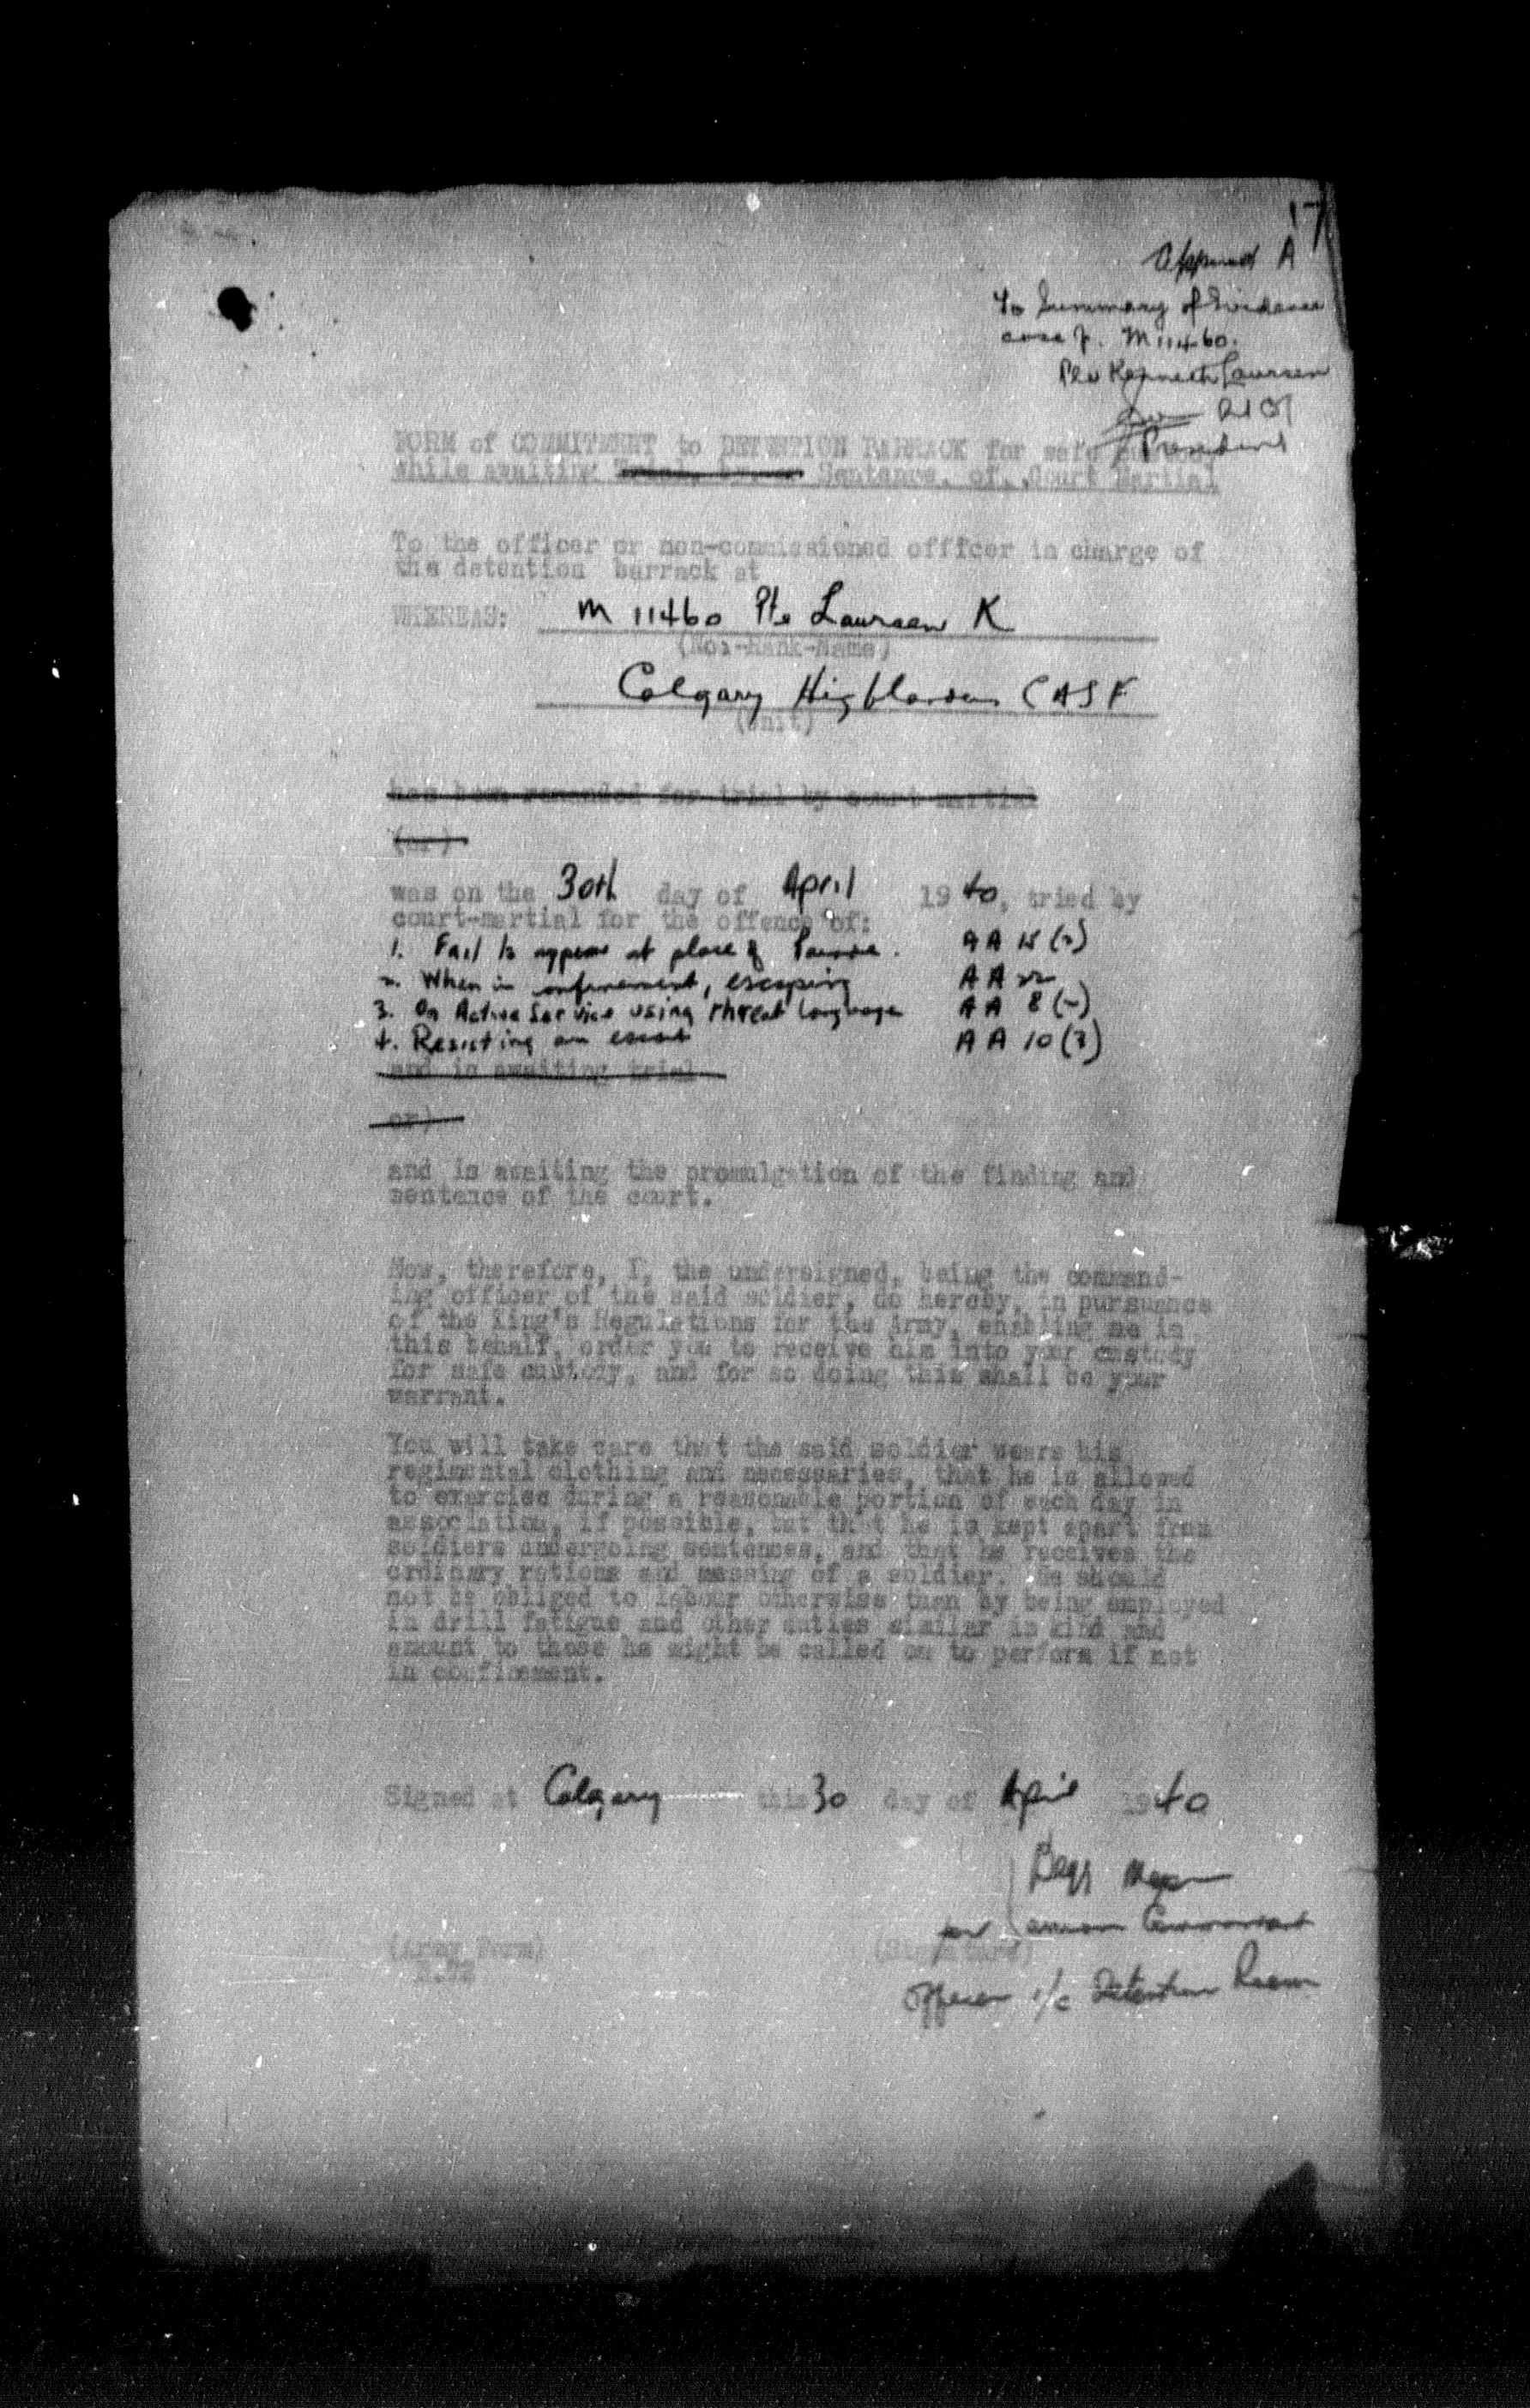 17
A
To Summary of Evidence
case of. M11460.
Pte Kenneth Laursen
President
FORM of COMMITMENT to DETENTION BARRACK for safe
while awaiting Sentence, of, Court Martial
To the officer or non-commissioned offfcer in charge of
the detention barrack at
WHEREAS: M 11460 Pte Laursen K
(No.-Rank-Name)
Calgary Highlanders CASF
(Unit)
has been remanded for trial by court martial
(or)
was on the 30th day of April 1940, tried by
court-martial for the offence of:
1. Fail to appear at place of Parade. AA 15 (2)
2. When in confinement, escaping AA 22
3. On Active Service using threat language AA 8 (2)
4. Resisting an escort AA 10 (3)
and is awaiting trial
or)
and is awaiting the promulgation of the finding and
sentence of the court.
Now, therefore, I, the undersigned, being the command-
ing officer of the said soldier, do hereby, in pursuance
of the King's Regulations for the Army, enabling me in
this behalf, order you to receive him into your custody
for safe custody, and for so doing this shall be your
warrant.
You will take care that the said soldier wears his
regimental clothing and necessaries, that he is allowed
to exercise during a reasonable portion of each day in
association, if possible, but that he is kept apart from
soldiers undergoing sentences, and that he receives the
ordinary rations and messing of a soldier. He should
not be obliged to labour otherwise than by being employed
in drill fatigue and other duties similar in kind and
amount to those he might be called on to perform if not
in confinement.
Signed at Calgary this 30 day of April 1940
for
(Army Form) (Signature)
Officer i/c Detention Room